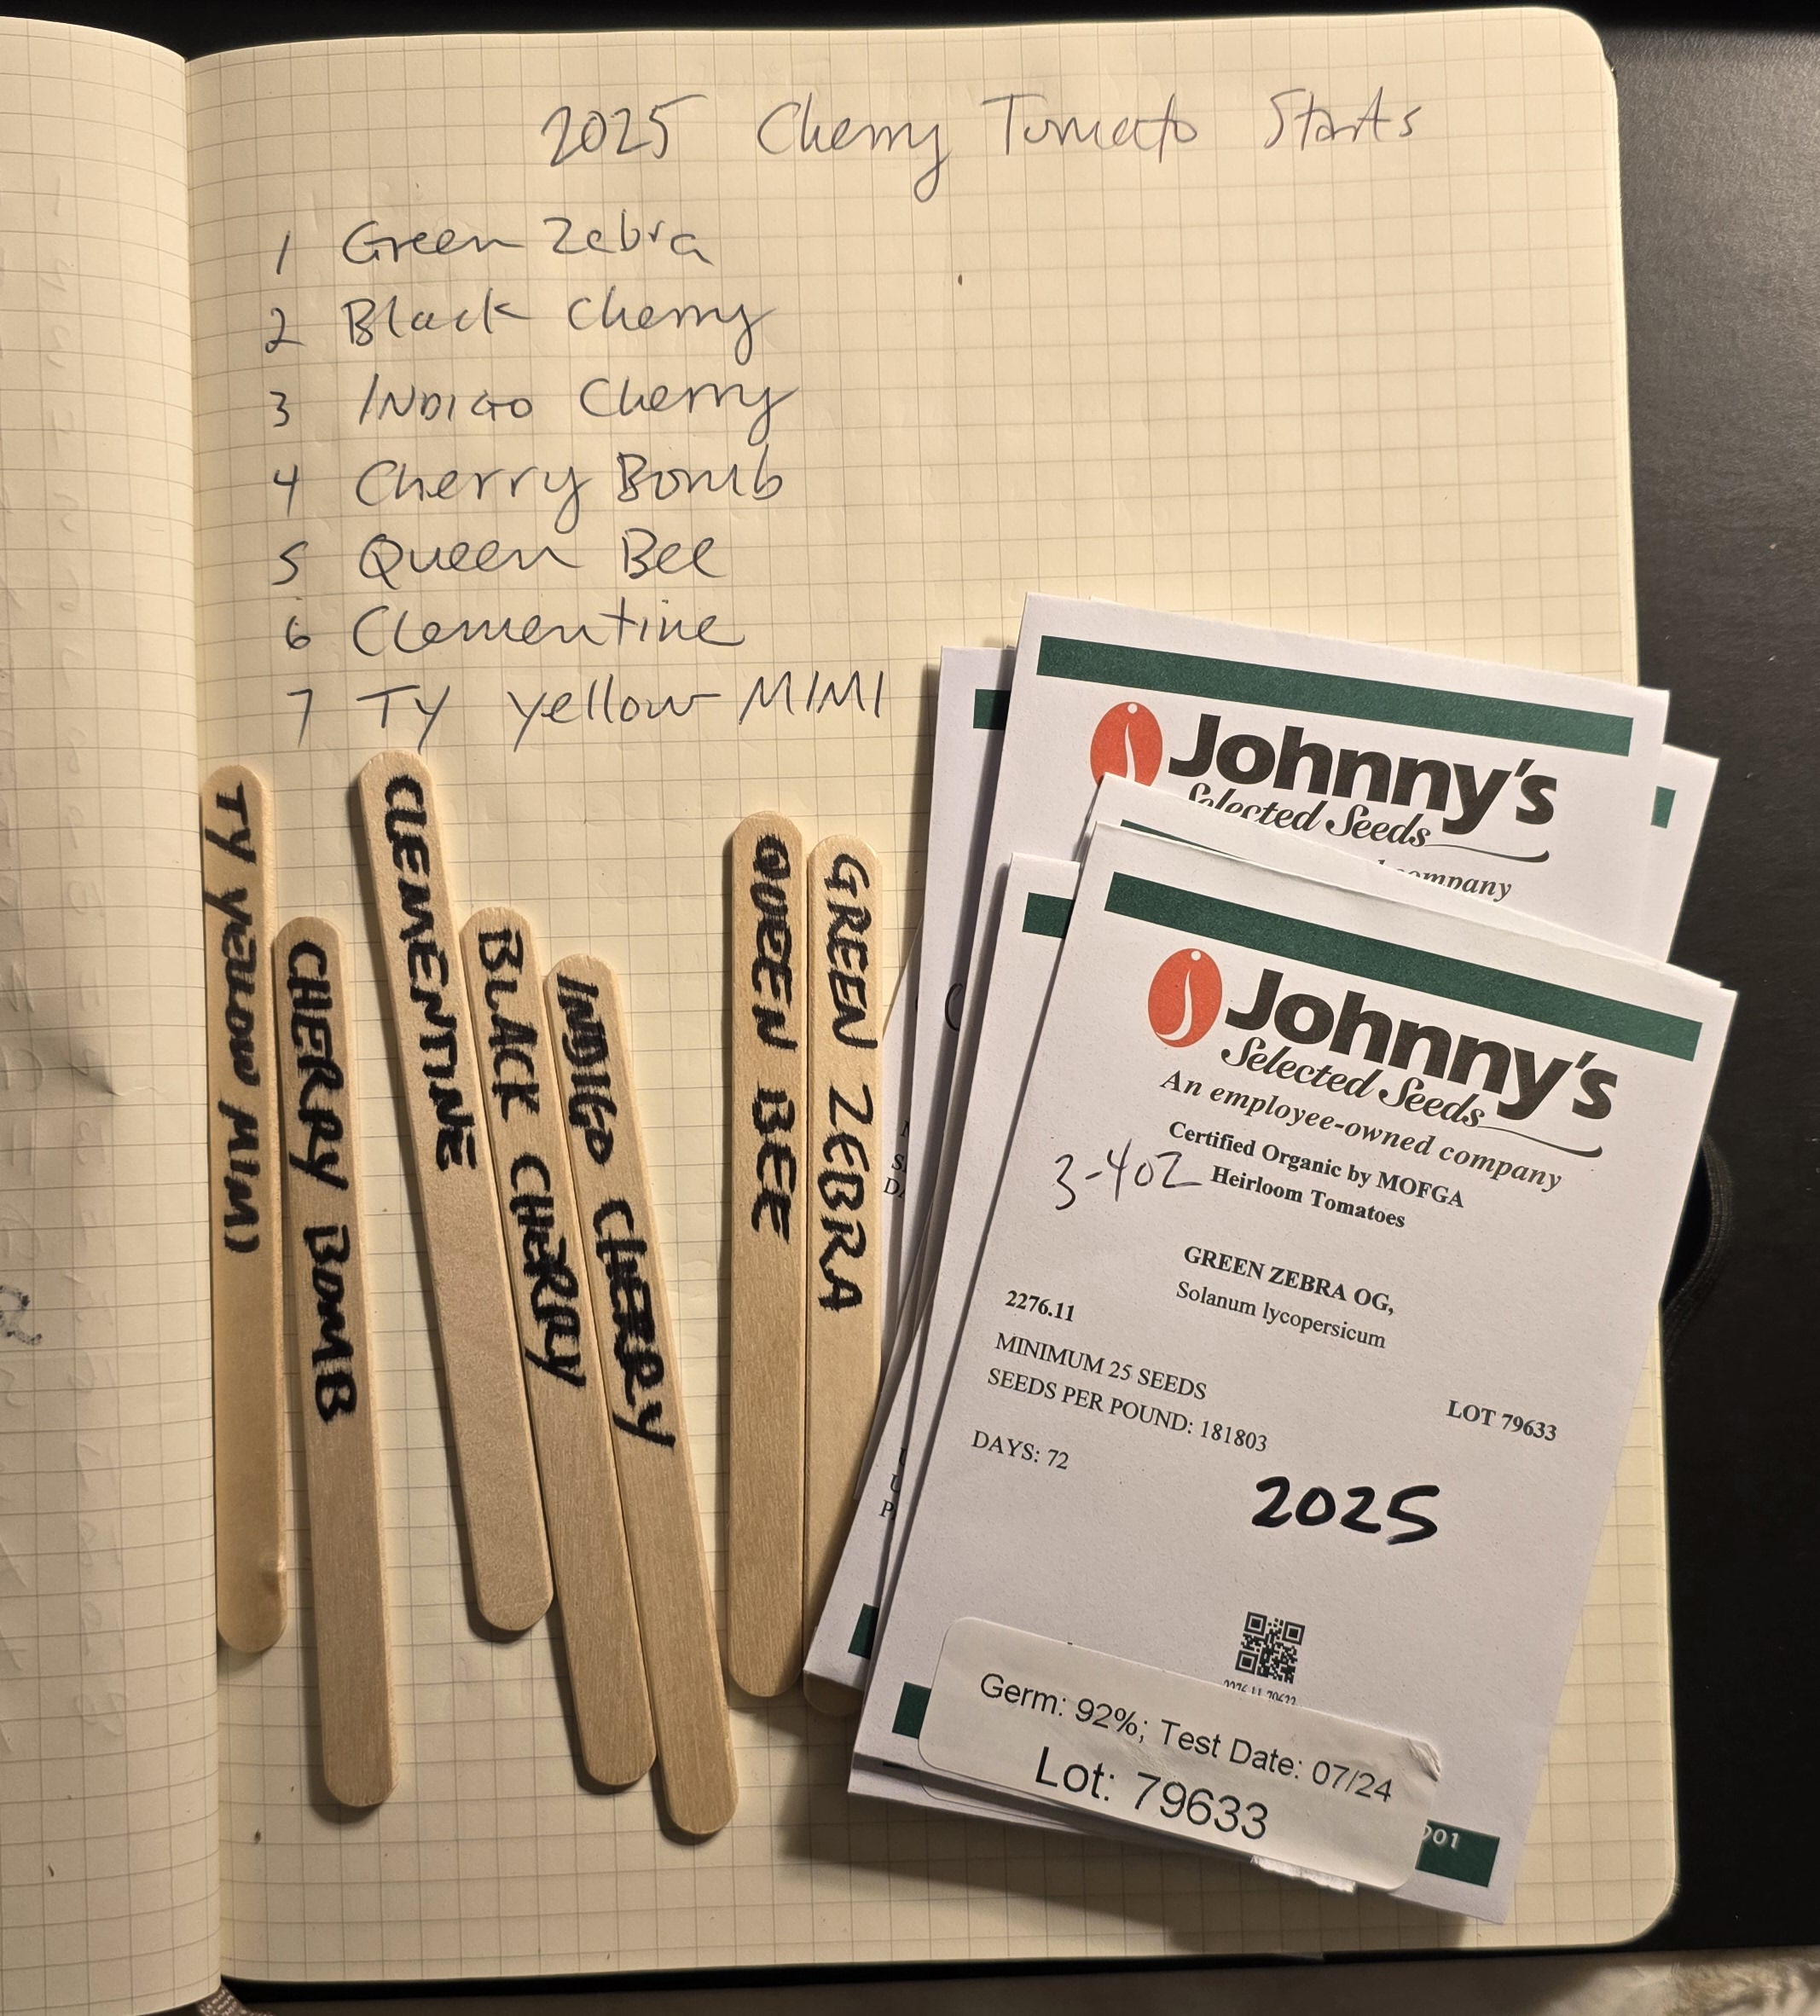 2025 Cherry Tomato Starts
1 Green Zebra
2 Black Cherry
3 INDIGO Cherry
4 Cherry Bomb
5 Queen Bee
6 Clementine
7 TY Yellow MIMI
TY YELLOW MIMI
CHERRY BOMB
CLEMENTINE
BLACK CHERRY
INDIGO CHERRY
QUEEN BEE
GREEN ZEBRA
Johnny's
Selected Seeds
company
Johnny's
Selected Seeds
An employee-owned company
Certified Organic by MOFGA
3-4OZ Heirloom Tomatoes
GREEN ZEBRA OG,
Solanum lycopersicum
2276.11
MINIMUM 25 SEEDS
SEEDS PER POUND: 181803
LOT 79633
DAYS: 72
2025
Germ: 92%; Test Date: 07/24
Lot: 79633